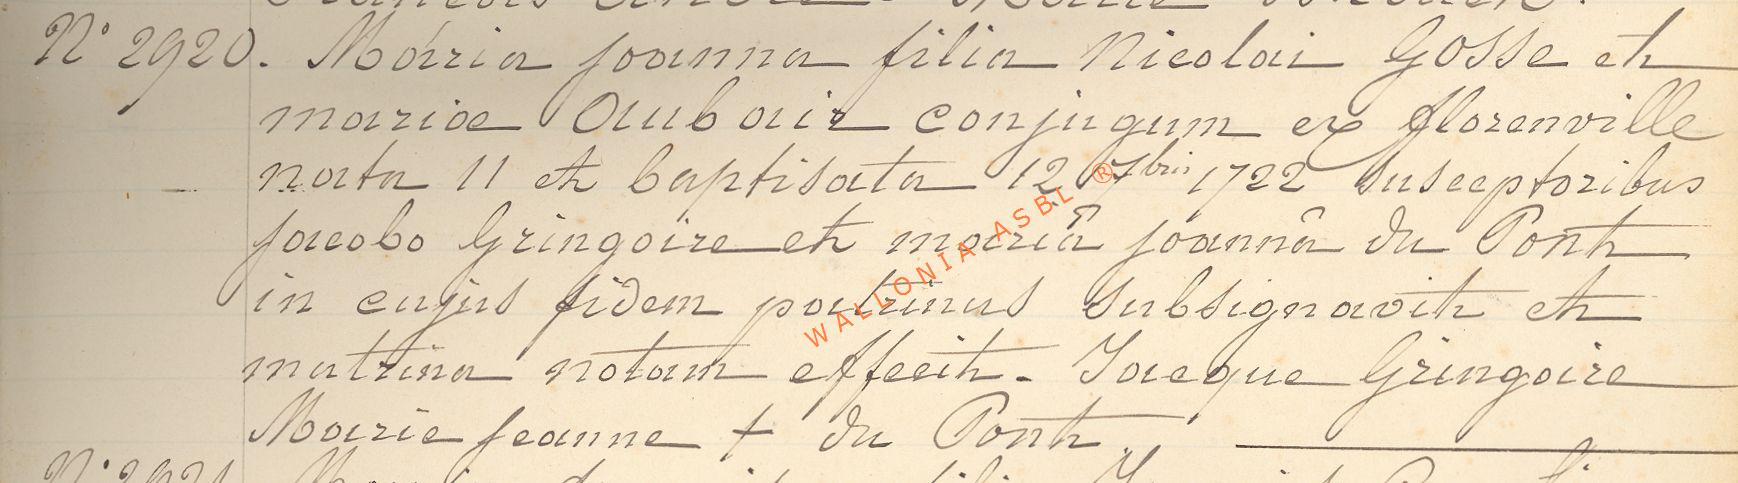 N° 2920. Maria joanna filia Nicolai Gosse et
mariae Aubair conjugum ex florenville
nata 11 et baptisata 12 7bris 1722 susceptoribus
jacobo Gringoire et mariâ joannâ du Pont
in cujus fidem patrinus subsignavit et
matrina notam effecit. Jacque Gringoire
Marie jeanne + du Pont.
N° 2921
WALLONIA ASBL ®